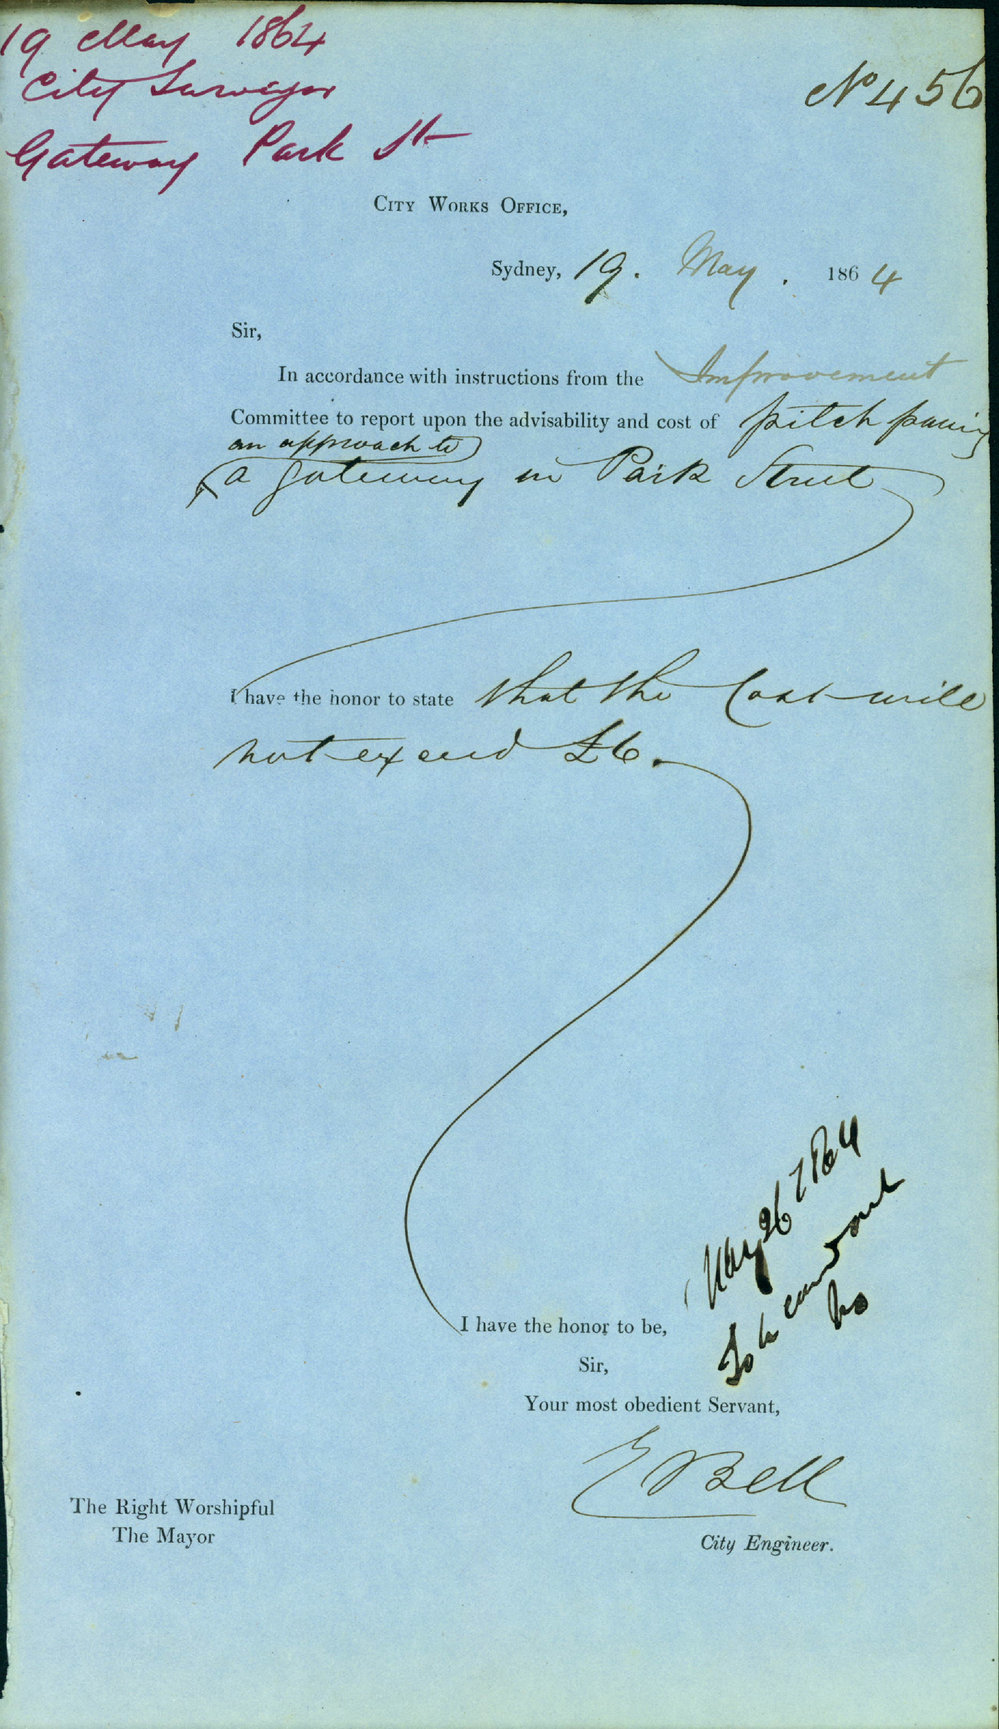 19 May 1864
City Surveyor
Gateway Park St
No 456
City Works Office,
Sydney, 19. May. 1864
Sir,
In accordance with instructions from the Improvement
Committee to report upon the advisability and cost of pitch paving
an approach to
a gateway in Park Street
I have the honor to state that the Cost will
not exceed £6.
May 26 1864
To be carried out
I have the honor to be,
Sir,
Your most obedient Servant,
E Bell
City Engineer.
The Right Worshipful
The Mayor